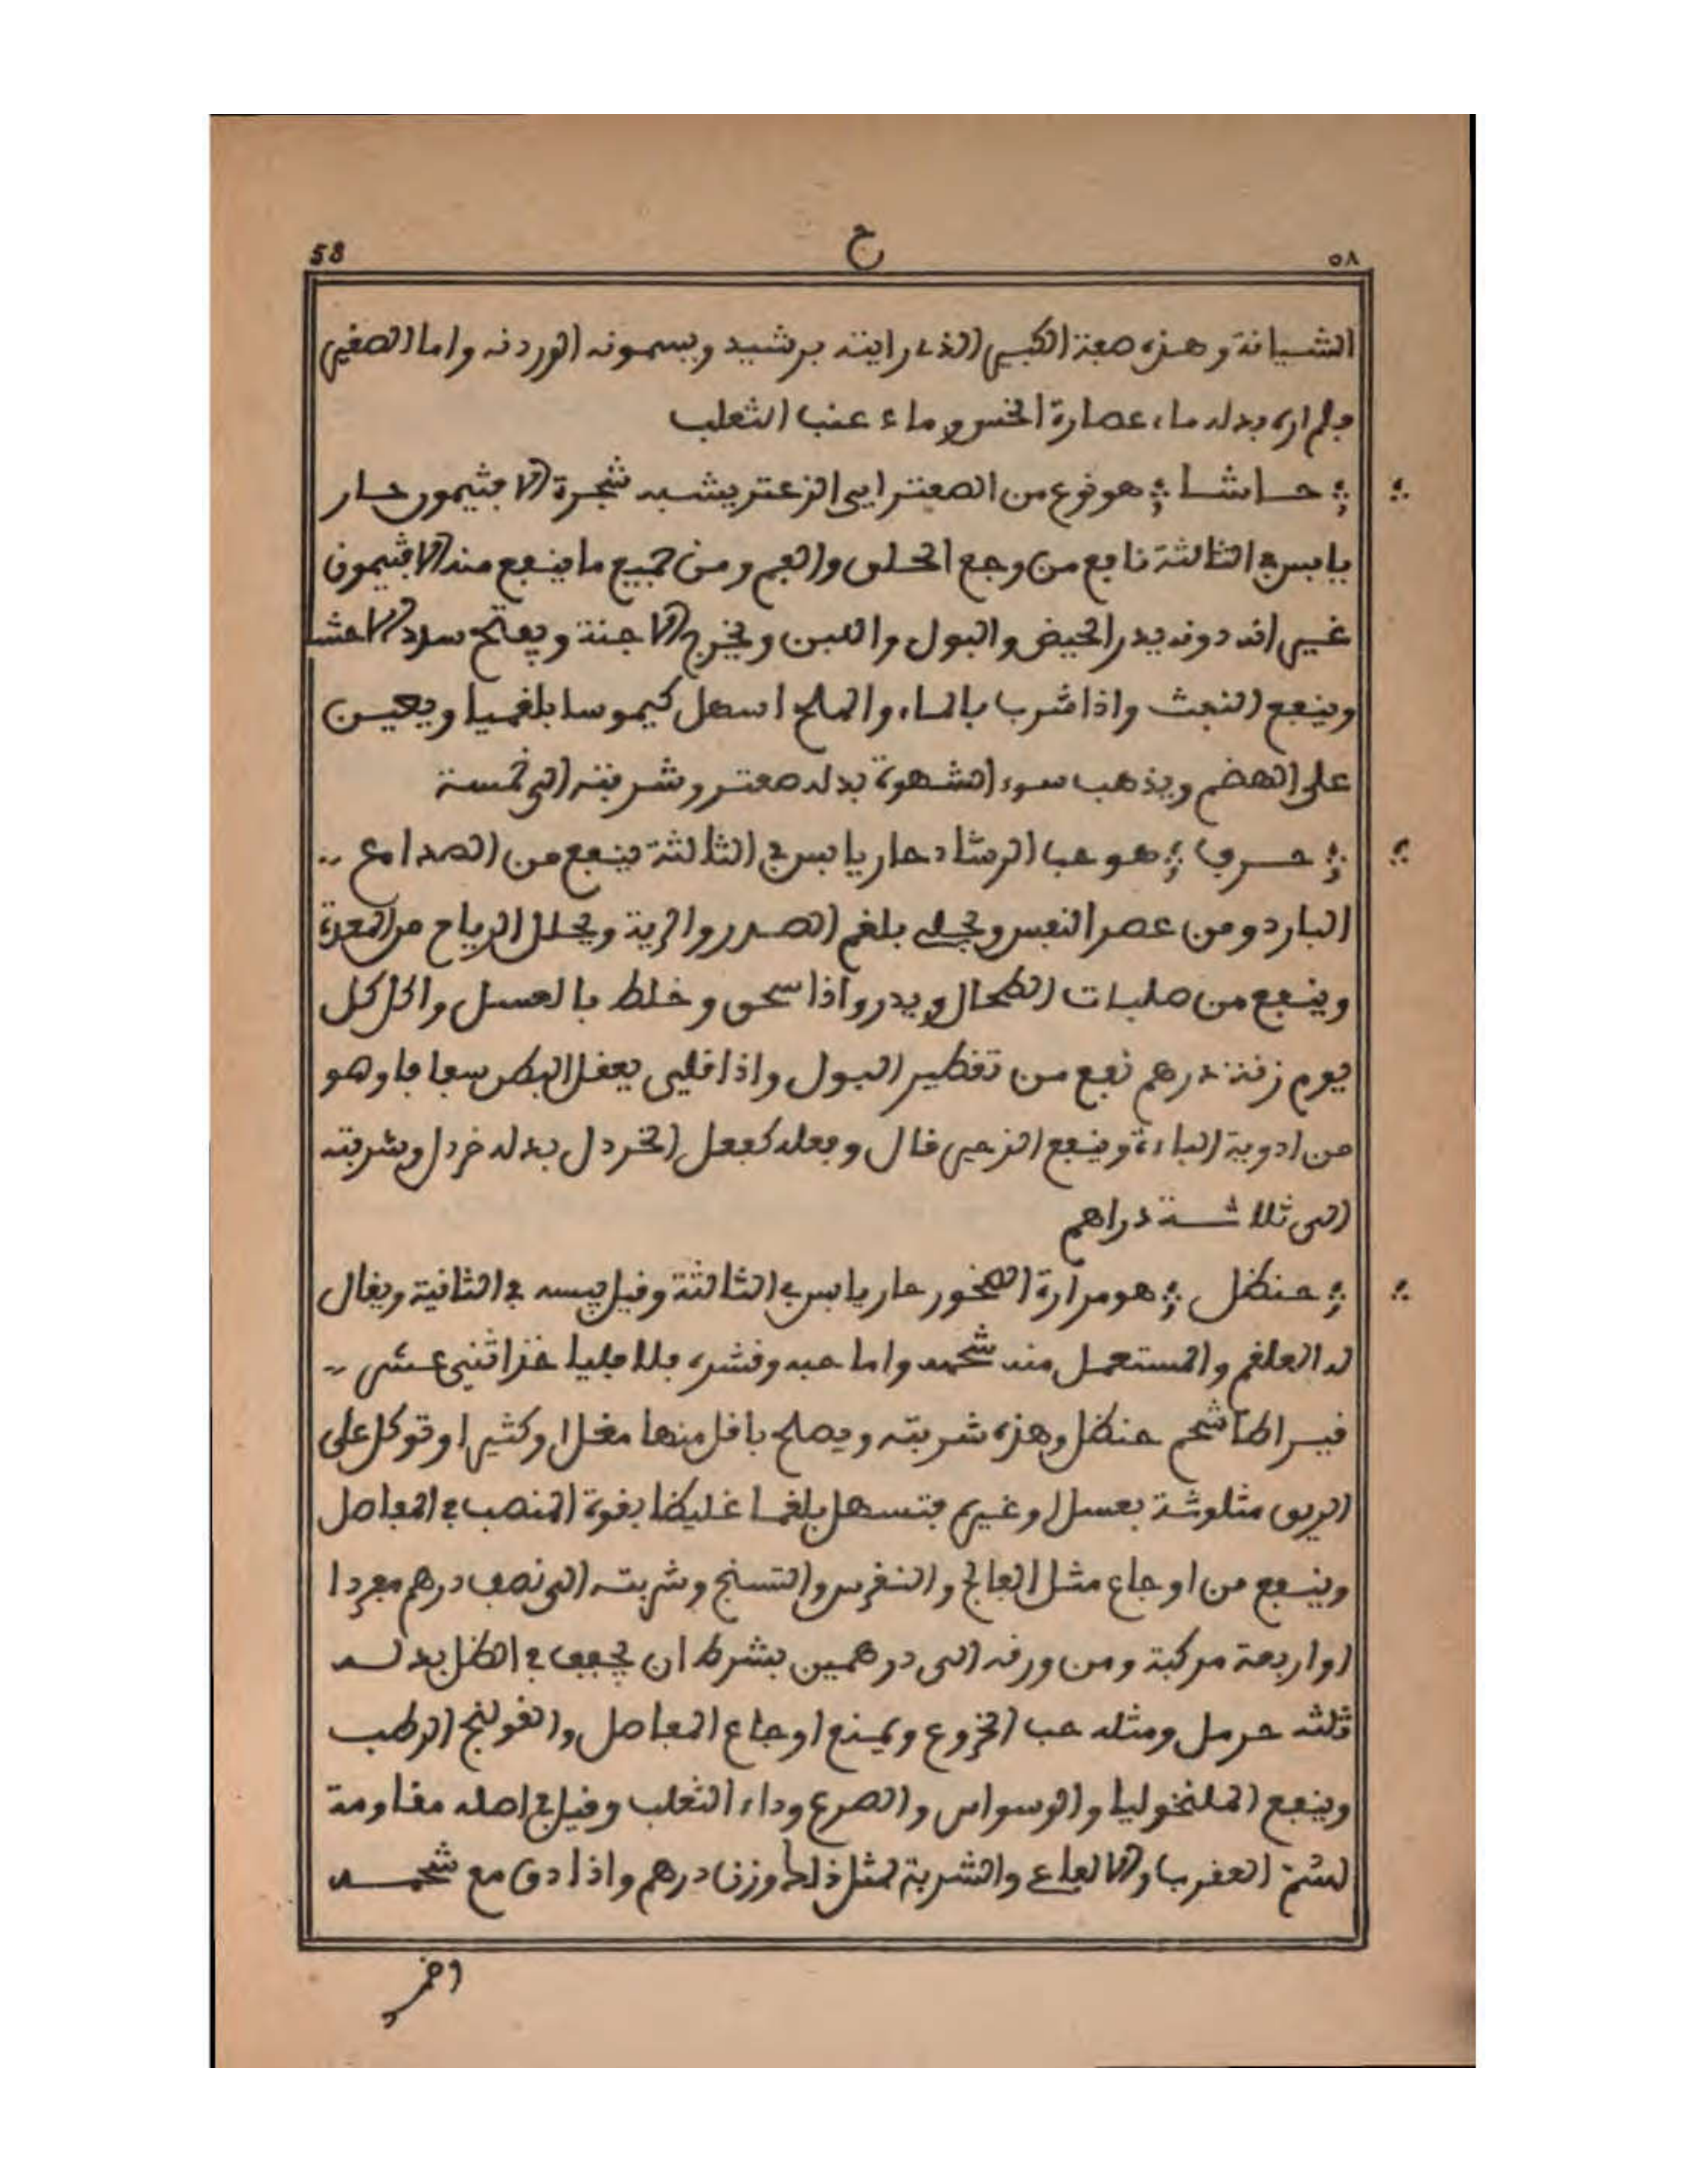 58 ح ٥٨
الشيانة وهذه صفة الكبير الذي رايته برشيد ويسمونه الوردنه واما الصغير
فلم اره بدله ماء عصارة الخس وماء عنب الثعلب
حاشا هو نوع من الصعتر اي الزعتر يشبه شجرة الافثيمون حار
يابس في الثالثة نافع من وجع الحلق والفم ومن جميع ما ينفع منه الافثيمون
غير انه دونه يدر الحيض والبول واللبن ويخرج الاجنة ويفتح سدد الاحشا
وينفع النفث واذا شرب بالماء والملح اسهل كيموسا بلغميا ويعين
على الهضم ويذهب سوء الشهوة بدله صعتر وشربته الى خمسة
حرف هو حب الرشاد حار يابس في الثالثة ينفع من الصداع
البارد ومن عصر النفس ويجلي بلغم الصدر والرية ويحلل الرياح من المعدة
وينفع من صلبات الطحال ويدر واذا سحق وخلط بالعسل واكل كل
يوم زنة درهم نفع من تقطير البول واذا قلي يعقل البطن سفافا وهو
من ادوية الباءة وينفع الزحير قال وفعله كفعل الخردل بدله خردل وشربته
الى ثلاثة دراهم
حنظل هو مرارة الصخور حار يابس في الثالثة وقيل يبسه في الثانية ويقال
له العلقم والمستعمل منه شحمه واما حبه وقشره فلا فليا خذ اثني عشر
قيراطا شحم حنظل وهذه شربته ويصلح باقل منها مقل او كثيرا وتوكل على
الريق مثلوثة بعسل او غيره فتسهل بلغما غليظا بقوة المنصب في المفاصل
وينفع من اوجاع مثل الفالج والنقرس والتسنج وشربته الى نصف درهم مفردا
او اربعة مركبة ومن ورقه الى درهمين بشرط ان يجفف في الظل بدله
ثلثه حرمل ومثله حب الخروع ويمنع اوجاع المفاصل والقولنج الرطب
وينفع الملنخوليا والوسواس والصرع وداء الثعلب وقيل في اصله مقاومة
لسم العقرب والافاع والشربة لمثل ذلك وزن درهم واذا دق مع شحمه